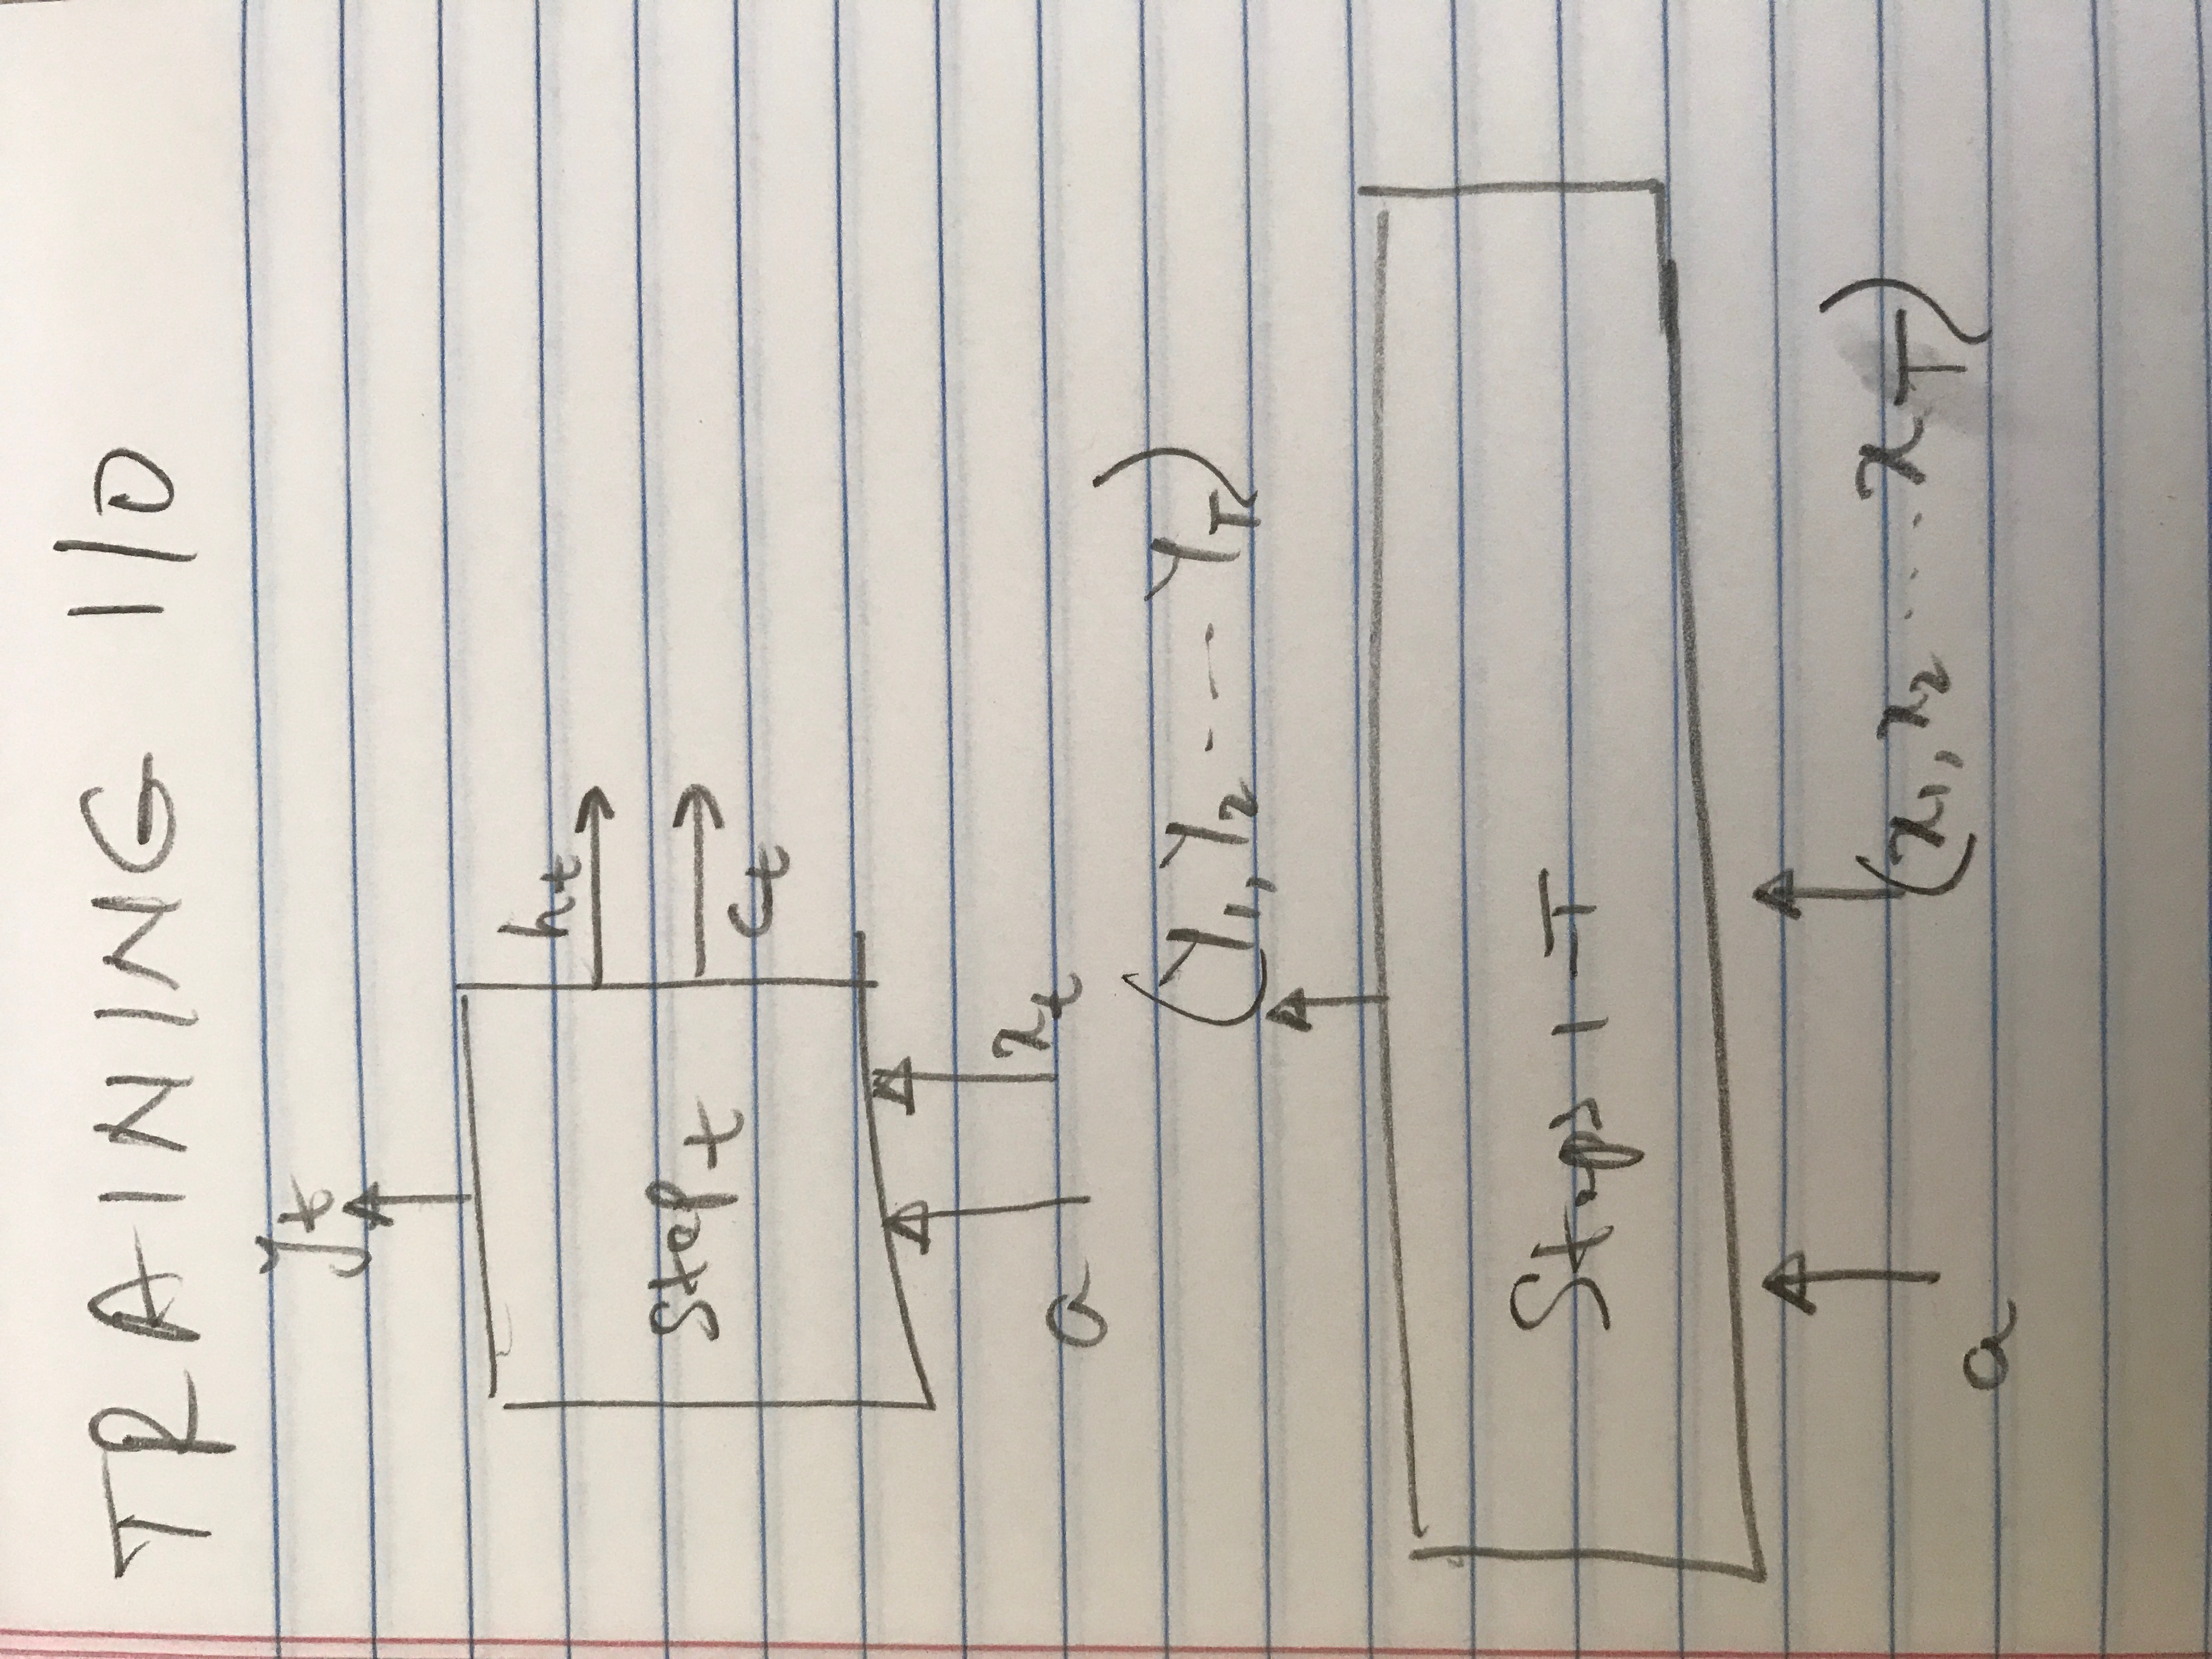 TRAINING I/O
yt
ht
Stept
ct
xt
a
(Y1, Y2 ---- YT)
Steps 1-T
(x1, x2 .... xT)
a